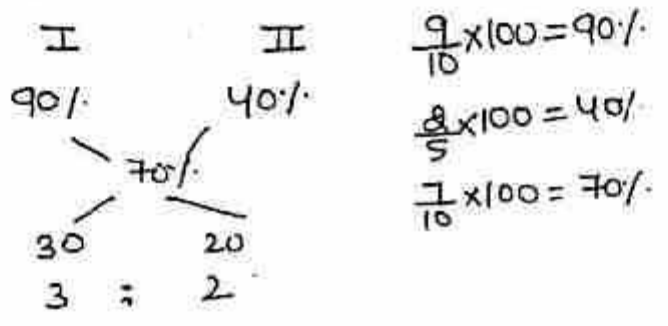 I II
90% 40%
70%
30 20
3 : 2
9/10 x100 = 90%
2/5 x100 = 40%
7/10 x100 = 70%